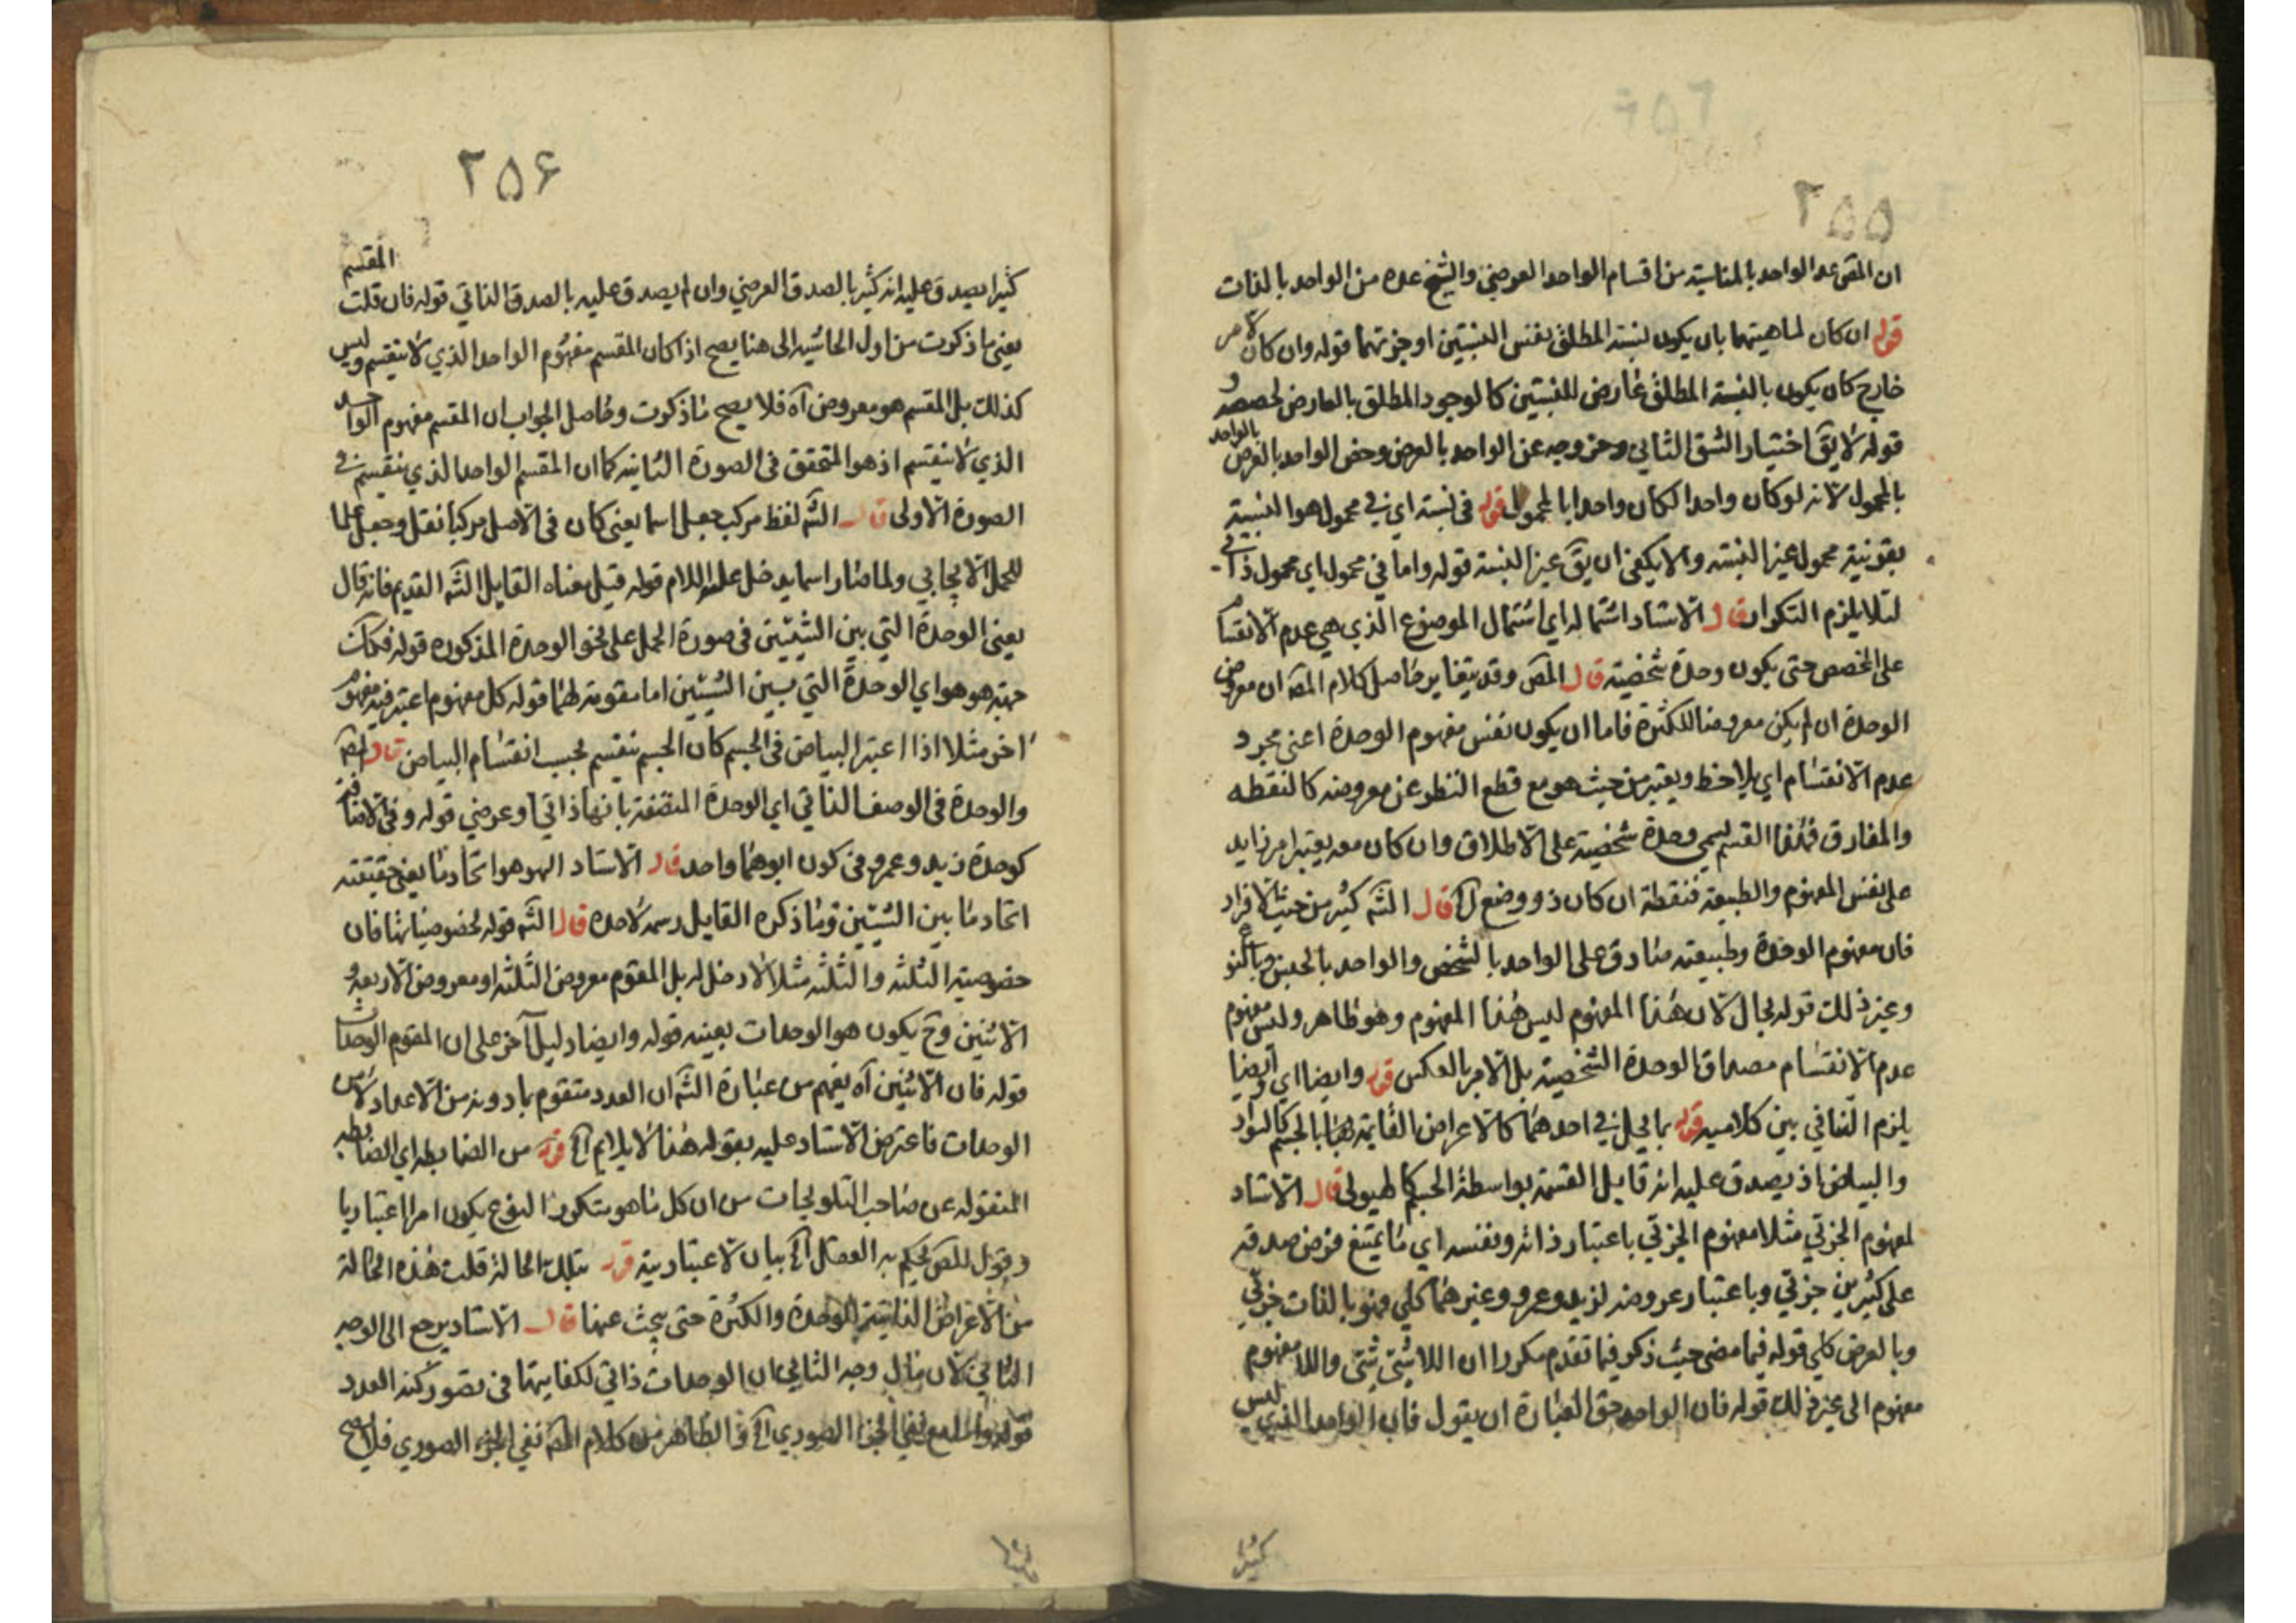 ۲۵۵
ان المقص عد الواحد بالمناسبة من اقسام الواحد العرضي والشيخ عده من الواحد بالذات
قوله ان كان لماهيتهما بان يكون لنسبة المطلق نفس النسبتين او جزئهما قوله وان كان لامر
خارج كان يكون بالنسبة المطلق عارض للنسبتين كالوجود المطلق بالعارض لحصصه و
قوله لا يق اختيار الشق الثاني وخروجه عن الواحد بالعرض وخص الواحد بالعرض بالواحد
بالمحمول لانه لو كان واحدا لكان واحدا بالمحمول قوله في نسبة اي في محمول هو النسبة
بقرينة محمول غير النسبة والا يكفي ان يق غير النسبة قوله واما في محمول اي محمول ذاتي
لئلا يلزم التكرار قال الاستاد اشتماله اي اشتمال الموضوع الذي هي عدم الانقسام
على التخصص حتى يكون وحدة شخصية قال المص وقد يتغاير حاصل كلام المص ان معروض
الوحدة ان لم يكن معروضا للكثرة فاما ان يكون نفس مفهوم الوحدة اعني مجرد
عدم الانقسام اي يلاحظ ويعتبر من حيث هو مع قطع النظر عن معروضه كالنقطه
والمفارق فهذا القسم ليمي وحدة شخصية على الاطلاق وان كان معه يعتبر امر زايد
على نفس المفهوم والطبيعة فنقطة ان كان ذو وضع آه قال الشه كثير من حيث الافراد
فان مفهوم الوحدة وطبيعته صادق على الواحد بالشخص والواحد بالجنس وبالنوع
وغير ذلك قوله بحال لان هذا المفهوم ليس هذا المفهوم وهو ظاهر وليس مفهوم
عدم الانقسام مصداق الوحدة الشخصية بل الامر بالعكس قوله وايضا اي وايضا
يلزم التنافي بين كلاميه قوله بما يحل في احدهما كالاعراض القايمة بالجسم كالسواد
والبياض اذ يصدق عليه انه قابل القسمة بواسطة الجسم كالهيولى قال الاستاد
لمفهوم الجزئي مثلا مفهوم الجزئي باعتبار ذاته ونفسه اي ما يمتنع فرض صدقه
على كثيرين جزئي وباعتبار عروضه لزيد وعمرو وغيرهما كلي فهو بالذات جزئي
وبالعرض كلي قوله فيما مضى حيث ذكر فيما تقدم مكررا ان اللاشئ شئ واللا مفهوم
مفهوم الى غير ذلك قوله فان الواحد حق العبارة ان يقول فان الواحد الذي ليس
كثيرا
۲۵۶
كثيرا يصدق عليه انه كثير بالصدق العرضي وان لم يصدق عليه بالصدق الذاتي قوله فان قلت المقسم
يعني ما ذكرت من اول الحاشية الى هنا يصح اذا كان المقسم مفهوم الواحد الذي لا ينقسم وليس
كذلك بل المقسم هو معروض آه فلا يصح ما ذكرت وحاصل الجواب ان المقسم مفهوم الواحد
الذي لا ينقسم اذ هو المتحقق في الصورة الثانيه كما ان المقسم الواحد الذي ينقسم في
الصورة الاولى قال الشه لفظ مركب جعل اسما يعني كان في الاصل مركبا نقل وجعل علما
للحمل الايجابي ولما صار اسما يدخل عليه اللام قوله قيل معناه القايل الشه القديم فانه قال
يعني الوحدة التي بين الشيئين في صورة الحمل على نحو الوحدة المذكوره قوله فكانت
جهة هو هو اي الوحدة التي بين الشيئين اما مقومة لهما قوله كل مفهوم اعتبر فيه مفهوم
اخر مثلا اذا اعتبر البياض في الجسم كان الجسم ينقسم بحسب انقسام البياض قال المص
والوحدة في الوصف الذاتي اي الوحدة المتصفة بانها ذاتي او عرضي قوله وفي الاضافة
كوحدة زيد وعمرو في كون ابوهما واحد قال الاستاد الهو هو اتحاد ما يعني حقيقته
اتحاد ما بين الشيئين وما ذكره القايل رسمه لا حده قال الشه قوله لخصوصياتها فان
خصوصية الثلثه والثلثه مثلا لا دخل له بل المقوم معروض الثلثه او معروض الاربعة و
الاثنين وح يكون هو الوحدات بعينه قوله وايضا دليل آخر على ان المقوم الوحدات
قوله فان الاثنين آه يفهم من عبارة الشه ان العدد متقوم بما دونه من الاعداد لا من
الوحدات فاعترض الاستاد عليه بقوله هذا لا يلايم آه قوله من الضابطه اي الضابطه
المنقوله عن صاحب التلويحات من ان كل ما هو يتكرر النوع يكون امرا اعتباريا
وقول المص يحكم به العقل آه بيان لاعتبارية قوله بتلك الحالة قلت هذه الحالة
من الاعراض الذاتية للوحدة والكثرة حتى يبحث عنها قال الاستاد يرجع الى الوجه
الثاني لان مآل وجه الثاني ان الوحدات ذاتي لكفايتها في تصور كنه العدد
قوله مع نفي الجزء الصوري آه والظاهر من كلام المص نفي الجزء الصوري فلا يصح